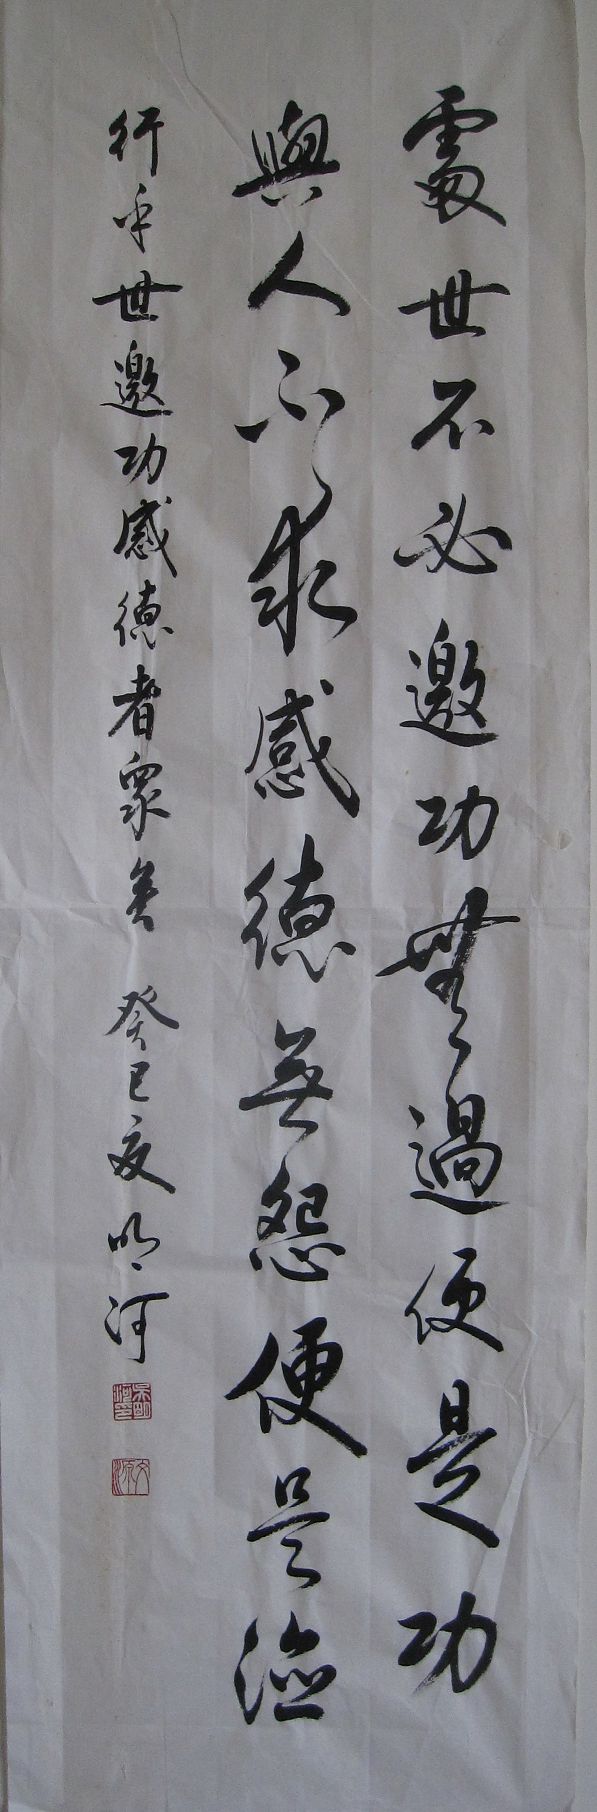 處世不必邀功無過便是功
與人不求感德無怨便是德
行乎世邀功感德者眾矣 癸巳夏明河